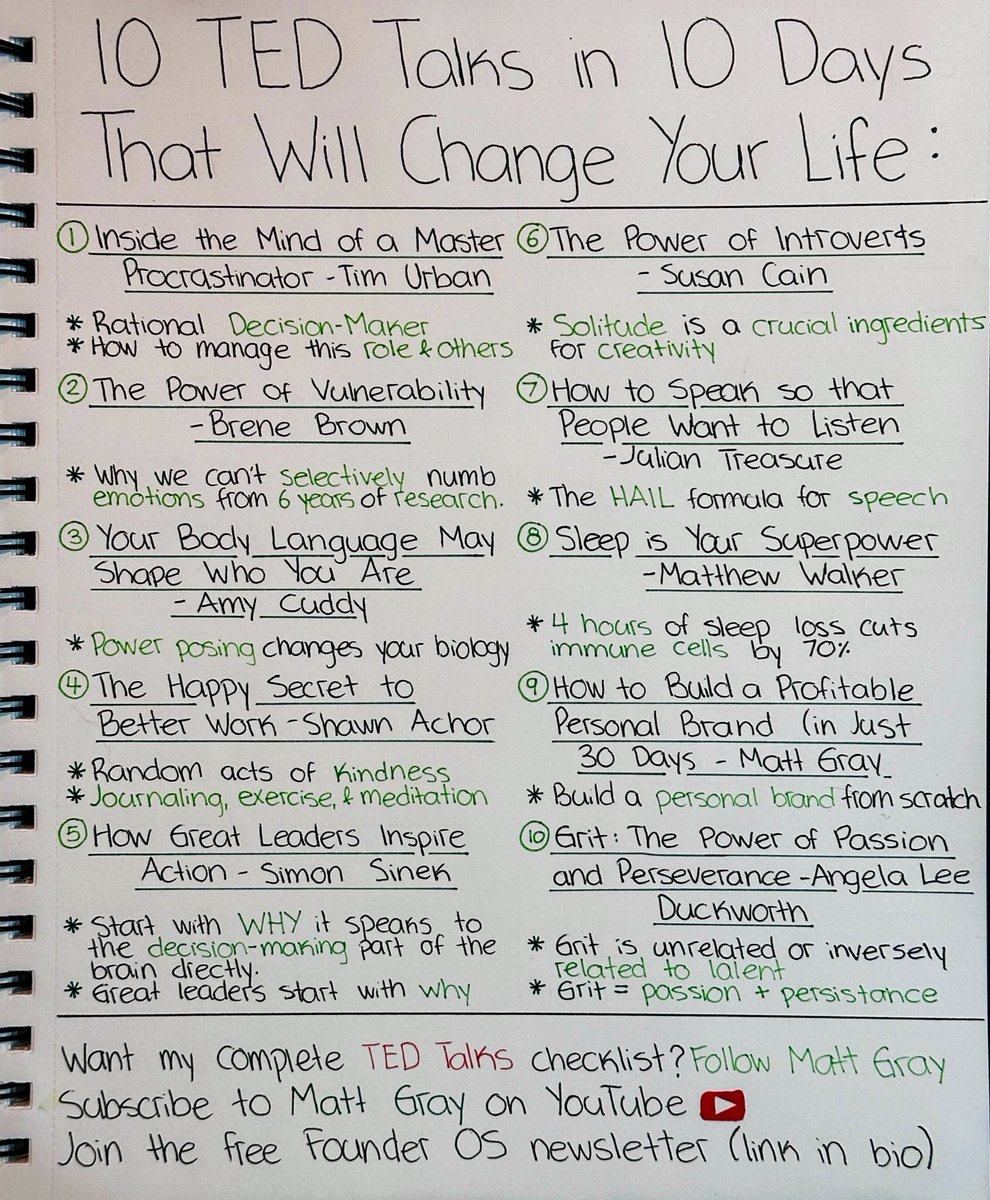 10 TED Talks in 10 Days
That Will Change Your Life:
① Inside the Mind of a Master
Procrastinator - Tim Urban
* Rational Decision-Maker
* How to manage this role & others
② The Power of Vulnerability
- Brene Brown
* Why we can't selectively numb
emotions from 6 years of research.
③ Your Body Language May
Shape Who You Are
- Amy Cuddy
* Power posing changes your biology
④ The Happy Secret to
Better Work - Shawn Achor
* Random acts of Kindness
* Journaling, exercise, & meditation
⑤ How Great Leaders Inspire
Action - Simon Sinek
* Start with WHY it speaks to
the decision-making part of the
brain directly.
* Great leaders start with why
⑥ The Power of Introverts
- Susan Cain
* Solitude is a crucial ingredients
for creativity
⑦ How to Speak so that
People Want to Listen
- Julian Treasure
* The HAIL formula for speech
⑧ Sleep is Your Superpower
- Matthew Walker
* 4 hours of sleep loss cuts
immune cells by 70%
⑨ How to Build a Profitable
Personal Brand (in Just
30 Days - Matt Gray
* Build a personal brand from scratch
⑩ Grit: The Power of Passion
and Perseverance - Angela Lee
Duckworth
* Grit is unrelated or inversely
related to talent
* Grit = passion + persistance
Want my complete TED Talks checklist? Follow Matt Gray
Subscribe to Matt Gray on YouTube
Join the free Founder OS newsletter (link in bio)